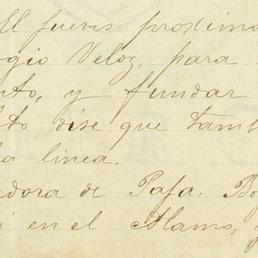 El jueves proximo
gio Veloz, para
nto, y fundar
to dise que tamb
la linea.
dora de Papa. Bo
i en el Alamo,